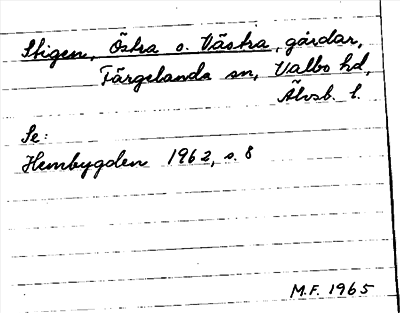 Stigen, Östra o. Västra, gårdar,
Färgelanda sn, Valbo hd,
Älvsb. l.
Se:
Hembygden 1962, s. 8
M.F. 1965